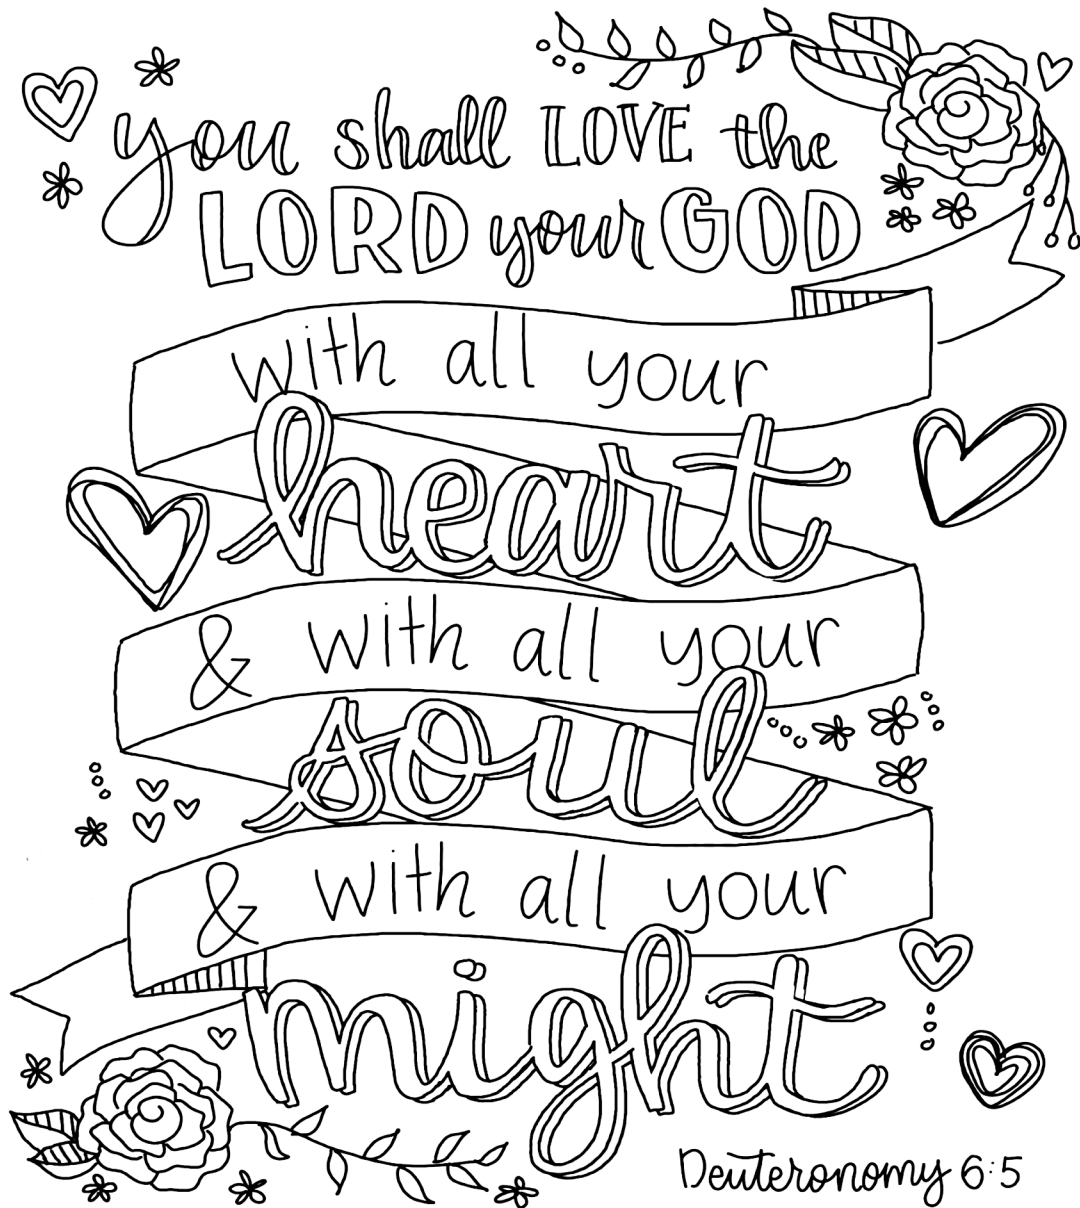 you shall LOVE the
LORD your GOD
with all your
heart
& with all your
soul
& with all your
might
Deuteronomy 6:5